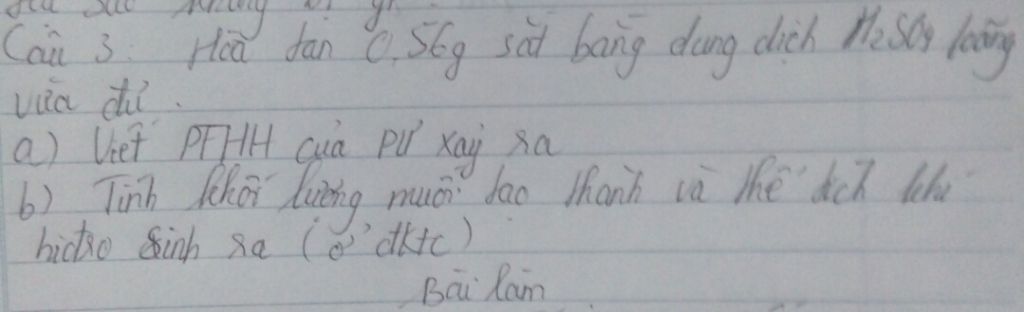 Câu 3: Hoà tan 0,56g sắt bằng dung dịch H2SO4 loãng
vừa đủ.
a) Viết PTHH của PƯ xảy ra
b) Tính khối lượng muối tạo thành và thể tích khí
hiđro sinh ra (ở đktc)
Bài làm